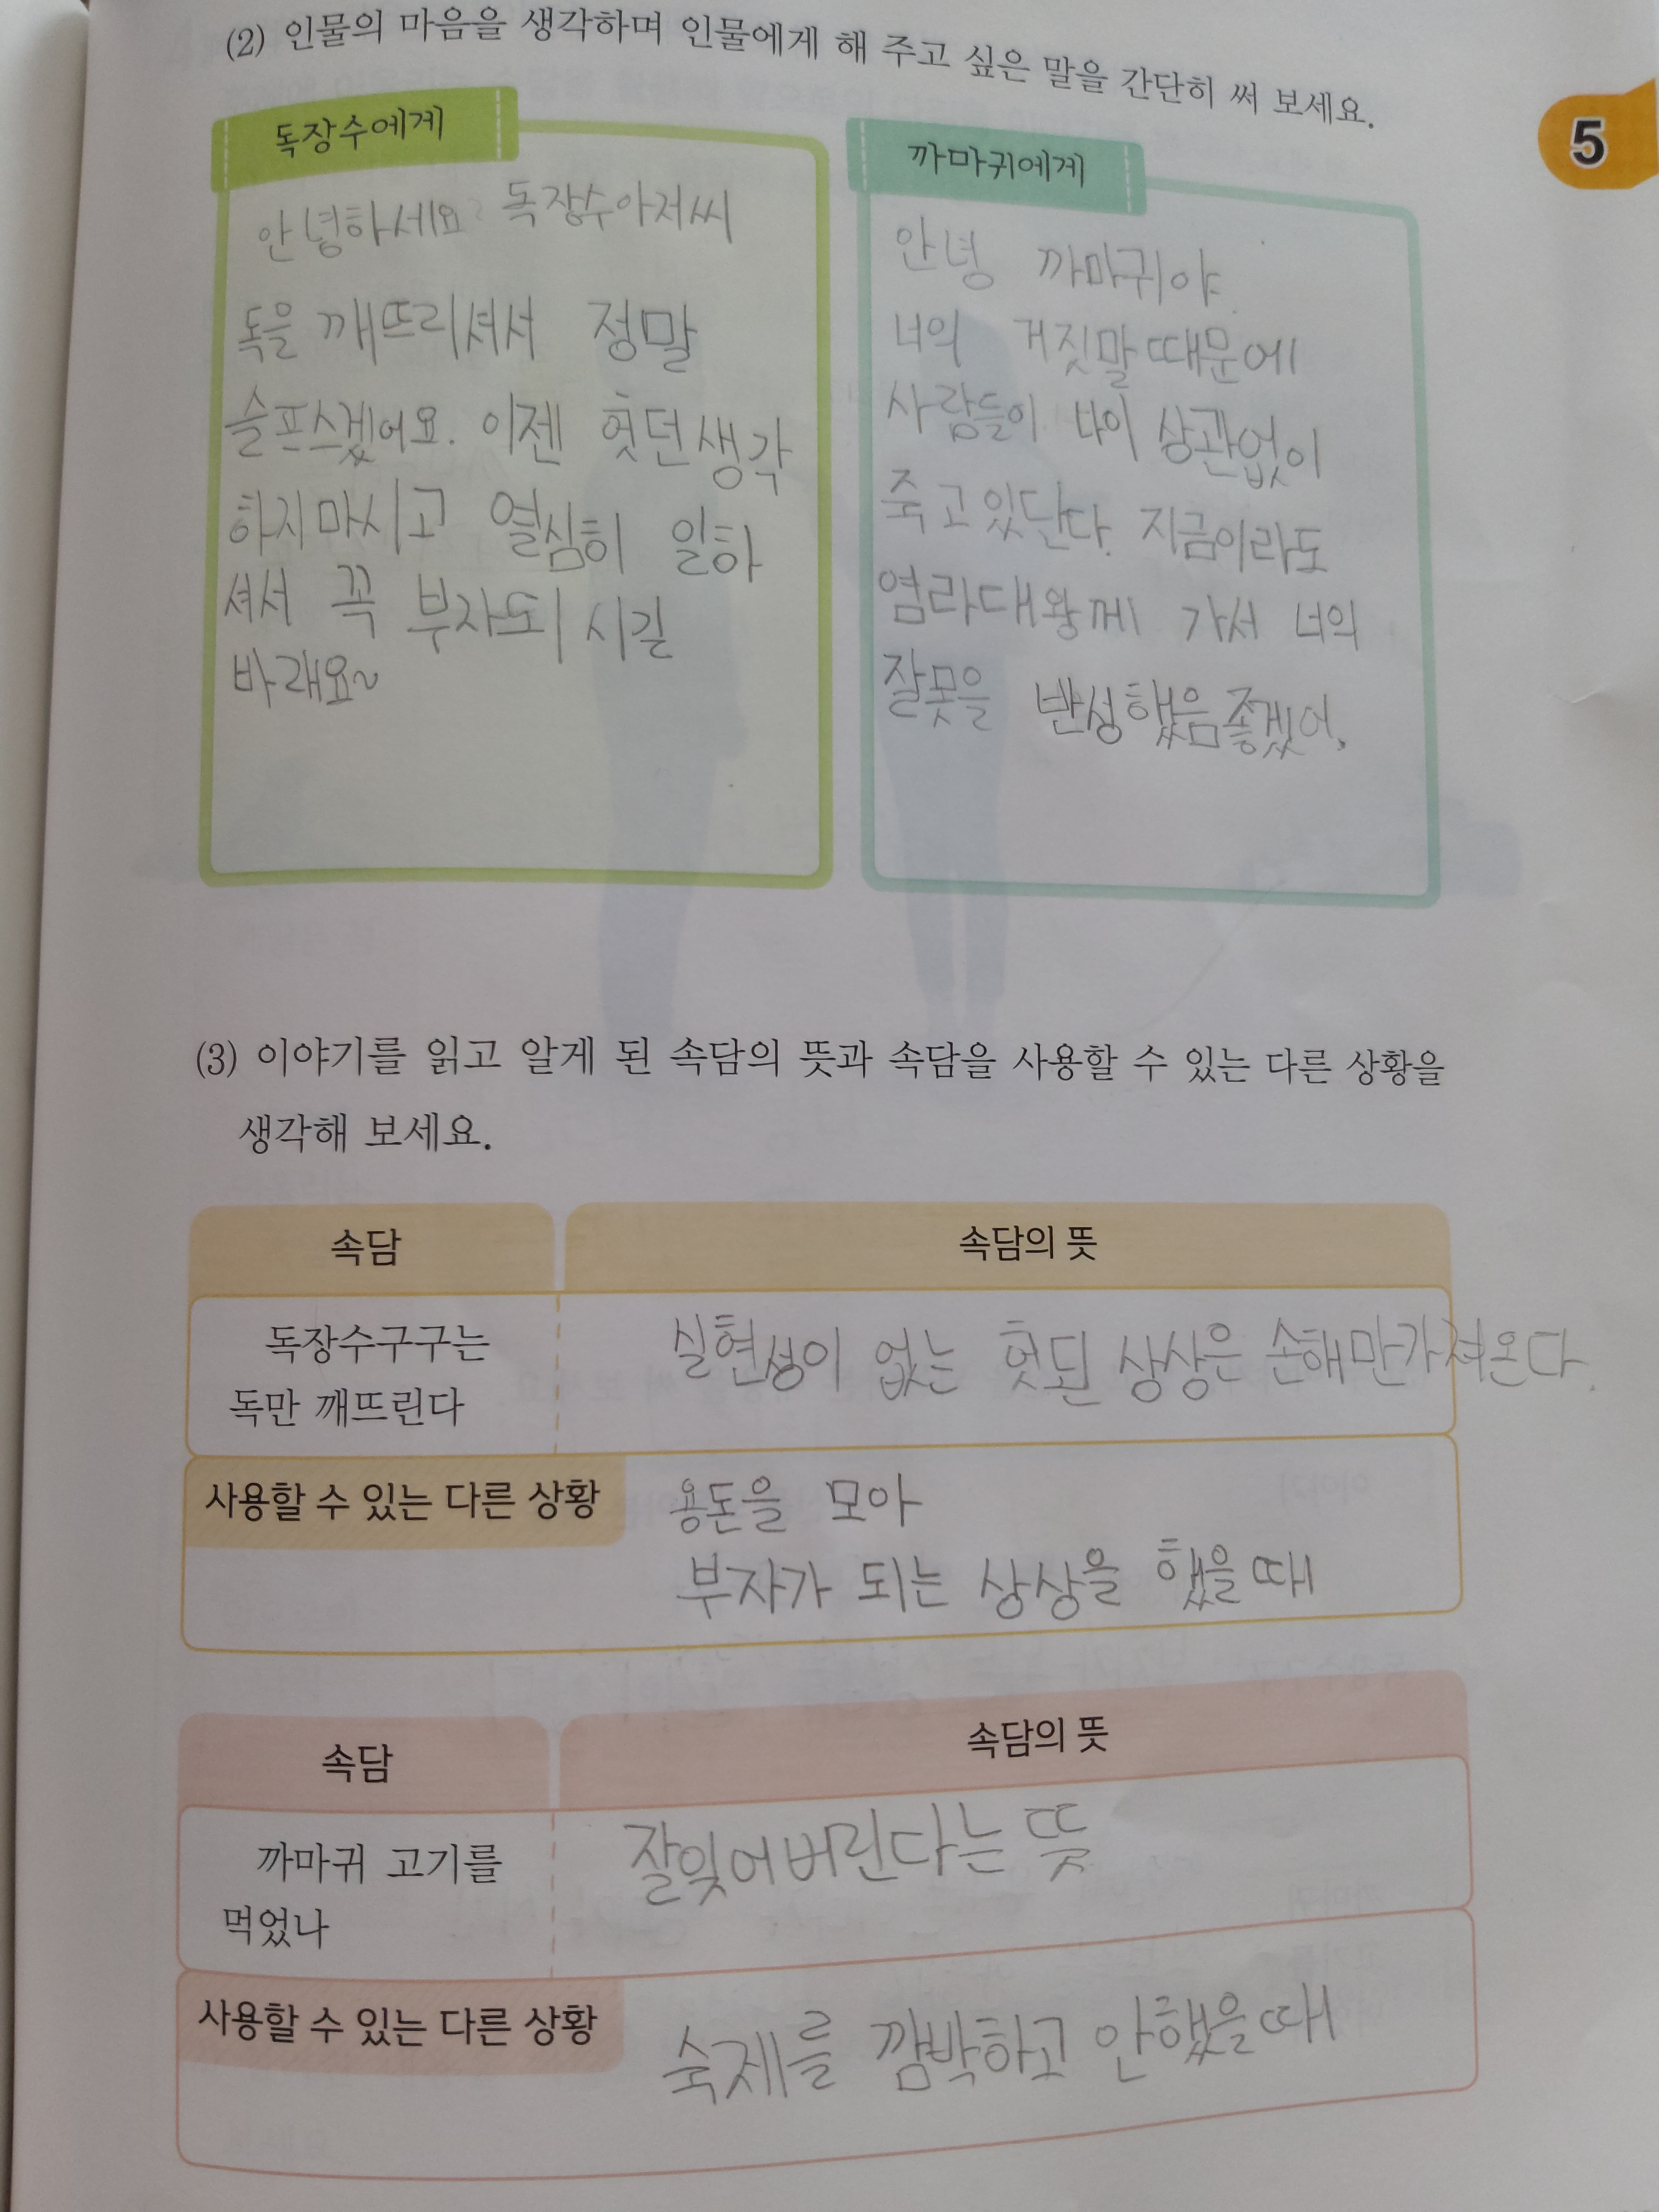 (2) 인물의 마음을 생각하며 인물에게 해 주고 싶은 말을 간단히 써 보세요.
5
독장수에게
안녕하세요 독장수아저씨
독을 깨뜨리셔서 정말
슬프스겠어요. 이젠 헛던생각
하지마시고 열심히 일하
셔서 꼭 부자되시길
바래요~
까마귀에게
안녕 까마귀야.
너의 거짓말때문에
사람들이 나이 상관없이
죽고있단다. 지금이라도
염라대왕께 가서 너의
잘못을 반성했음좋겠어.
(3) 이야기를 읽고 알게 된 속담의 뜻과 속담을 사용할 수 있는 다른 상황을
생각해 보세요.
속담
속담의 뜻
독장수구구는
독만 깨뜨린다
실현성이 없는 헛된 상상은 손해만가져온다.
사용할 수 있는 다른 상황
용돈을 모아
부자가 되는 상상을 했을때
속담
속담의 뜻
까마귀 고기를
먹었나
잘잊어버린다는 뜻
사용할 수 있는 다른 상황
숙제를 깜박하고 안했을때